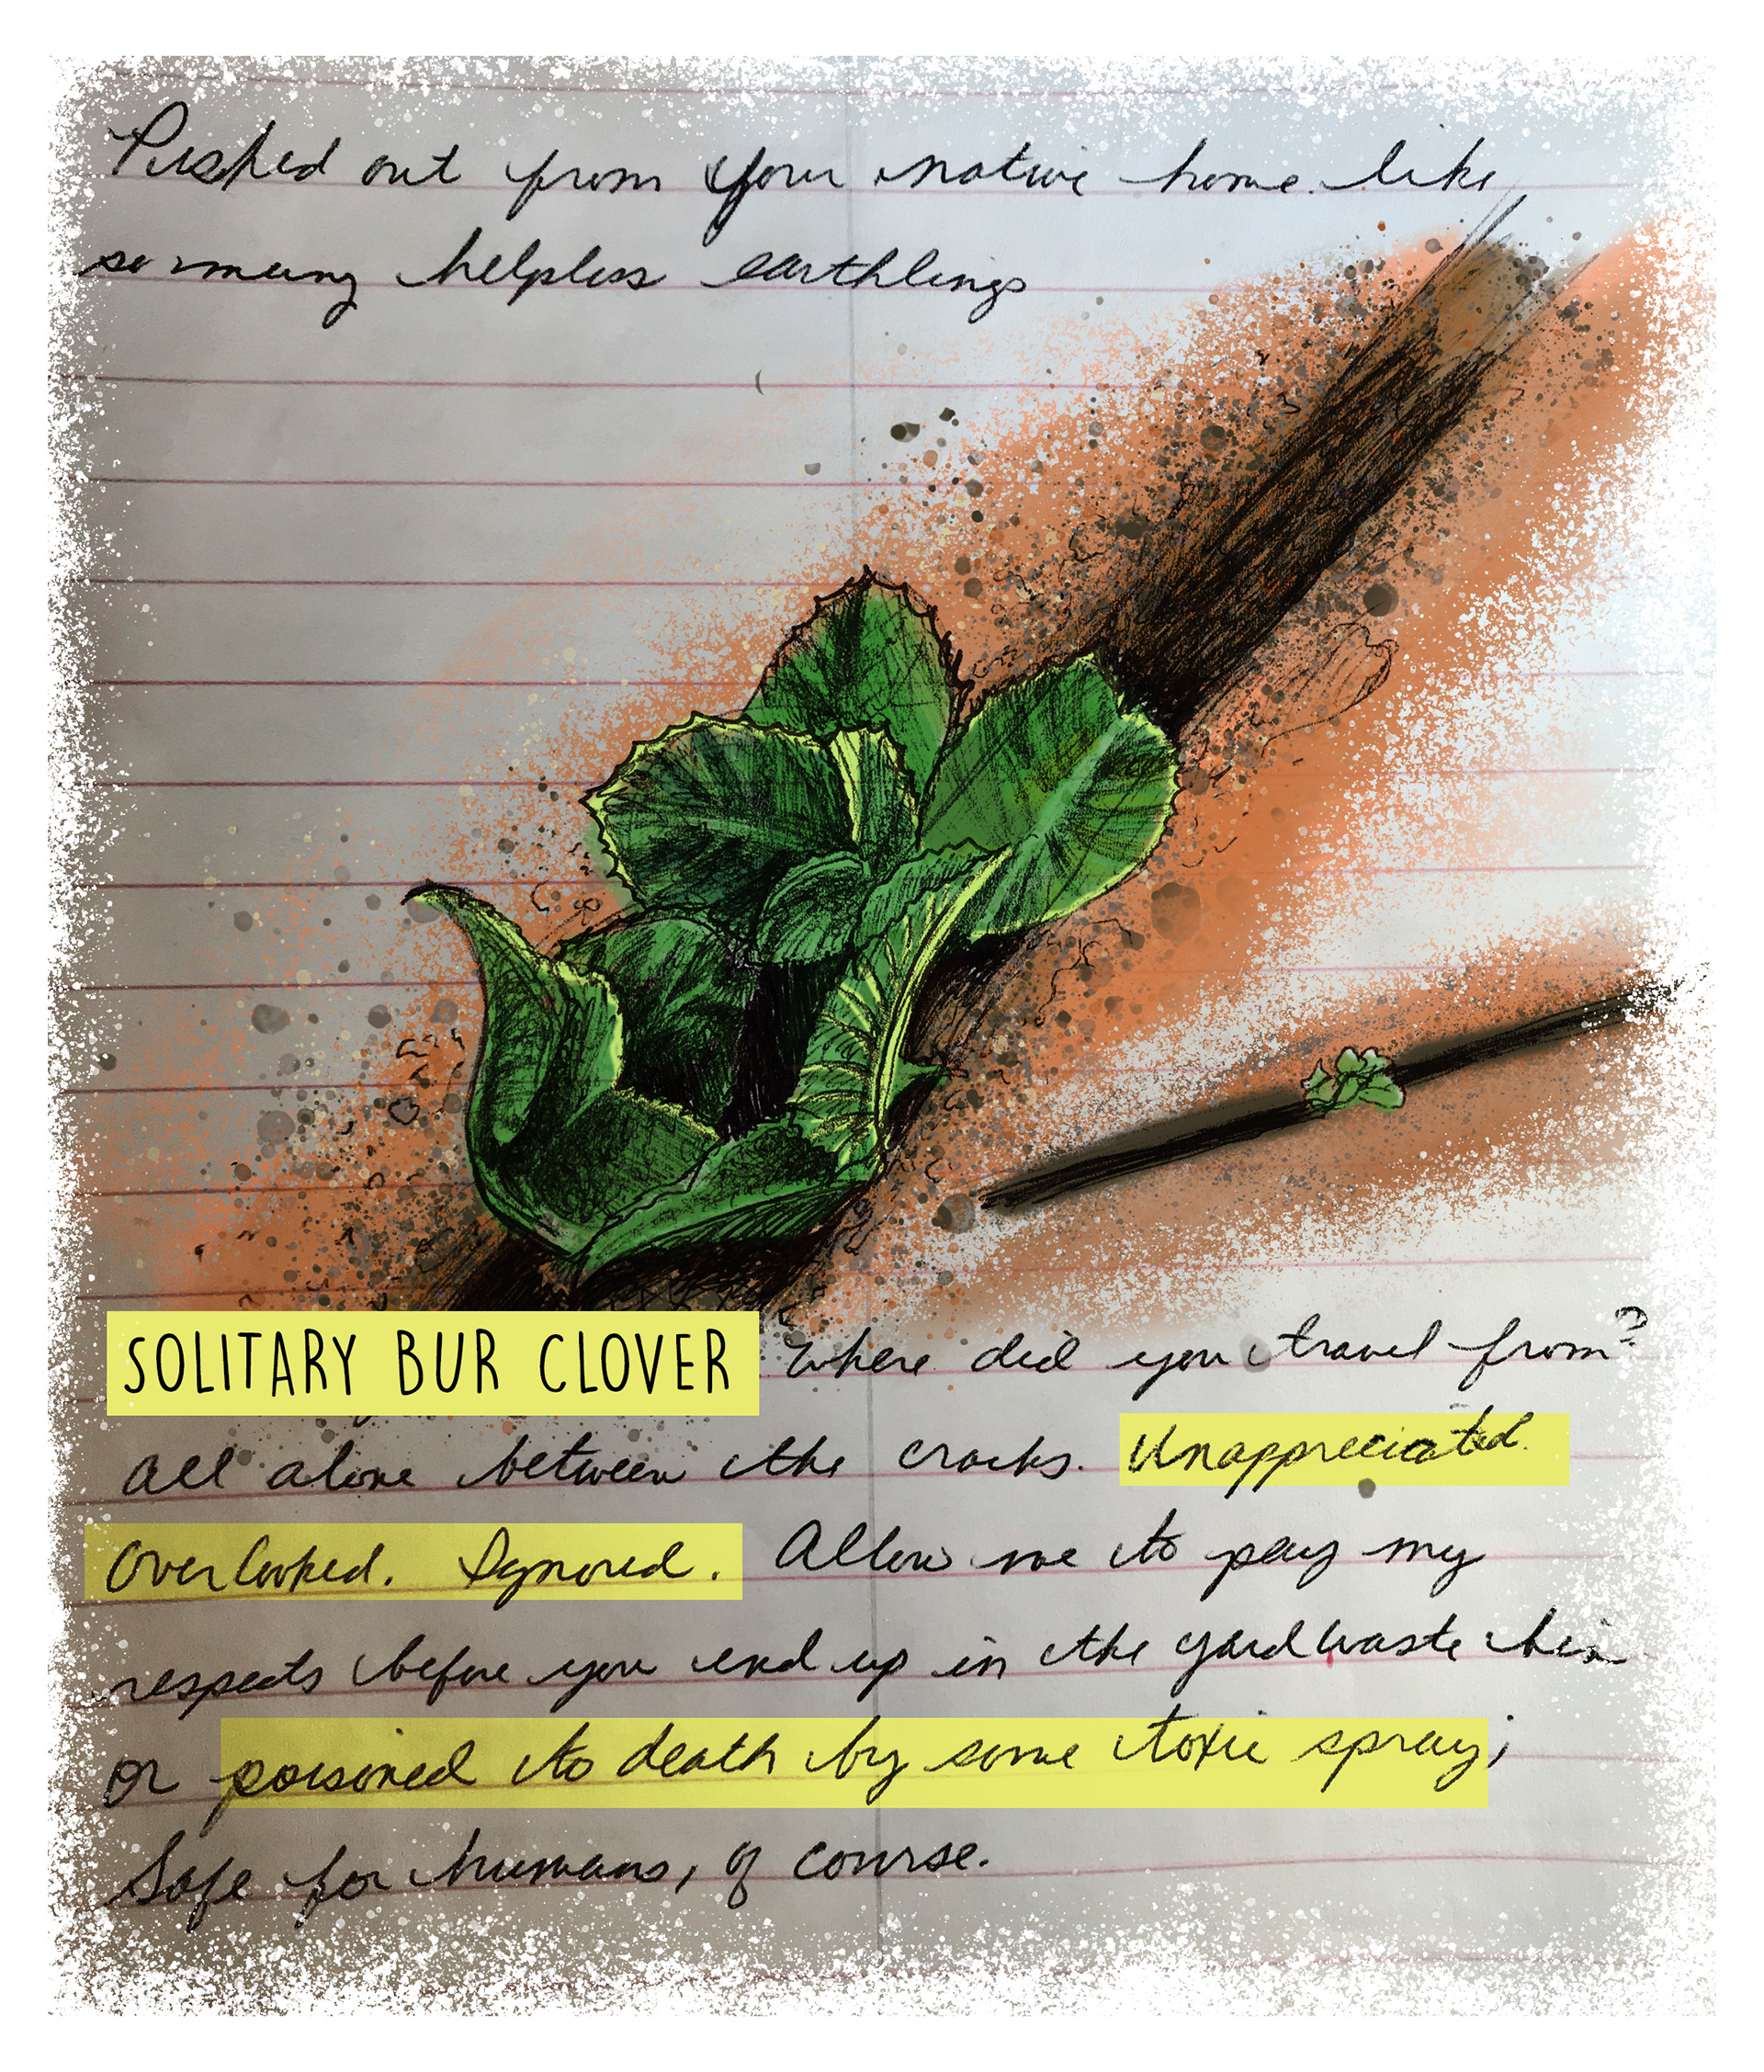 Pushed out from your native home like
so many helpless earthlings
SOLITARY BUR CLOVER Where did you travel from?
All alone between the cracks. Unappreciated.
Overlooked. Ignored. Allow me to pay my
respects before you end up in the yard waste bin
or poisoned to death by some toxic spray;
Safe for humans, of course.